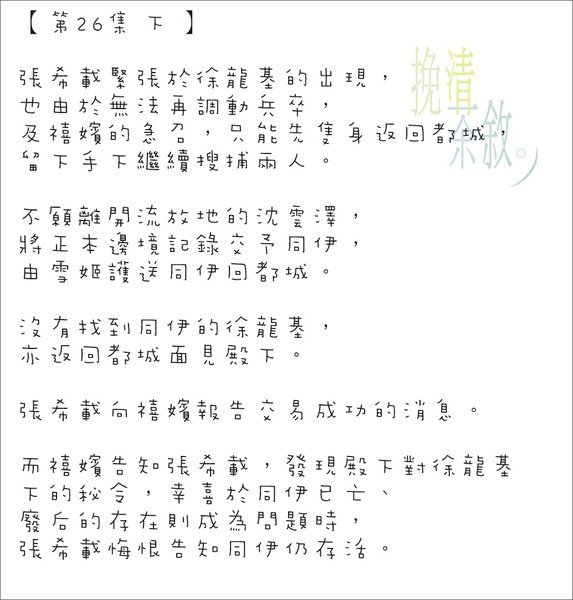 【第26集 下】
張希載緊張於徐龍基的出現，
也由於無法再調動兵卒，
及禧嬪的急召，只能先隻身返回都城，
留下手下繼續搜捕兩人。
不願離開流放地的沈雲澤，
將正本邊境記錄交予同伊，
由雪姬護送同伊回都城。
沒有找到同伊的徐龍基，
亦返回都城面見殿下。
張希載向禧嬪報告交易成功的消息。
而禧嬪告知張希載，發現殿下對徐龍基
下的秘令，幸喜於同伊已亡、
廢后的存在則成為問題時，
張希載悔恨告知同伊仍存活。
挽清
余敘。